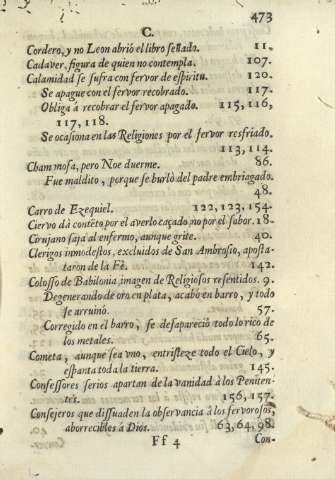 473
C.
Cordero, y no Leon abriò el libro sellado. 11.
Cadaver, figura de quien no contempla. 107.
Calamidad se sufra con fervor de espiritu. 120.
Se apague con el fervor recobrado. 117.
Obliga à recobrar el fervor apagado. 115, 116,
117, 118.
Se ocasiona en las Religiones por el fervor resfriado.
113, 114.
Cham mofa, pero Noe duerme. 86.
Fue maldito, porque se burlò del padre embriagado.
48.
Carro de Ezequiel. 122, 123, 154.
Ciervo dà contẽto por el averlo caçado, no por el sabor. 18.
Cirujano saja al enfermo, aunque grite. 40.
Clerigos inmodestos, excluidos de San Ambrosio, aposta-
taron de la Fè. 142.
Colosso de Babilonia, imagen de Religiosos resentidos. 9.
Degenerando de oro en plata, acabò en barro, y todo
se arruinò. 57.
Corregido en el barro, se desapareciò todo lo rico de
los metales. 65.
Cometa, aunque sea vno, entristeze todo el Cielo, y
espanta toda la tierra. 145.
Confessores serios apartan de la vanidad à los Peniten-
tes. 156, 157.
Consejeros que dissuaden la observancia à los fervorosos,
aborrecibles à Dios. 63, 64, 98.
Ff 4 Con-